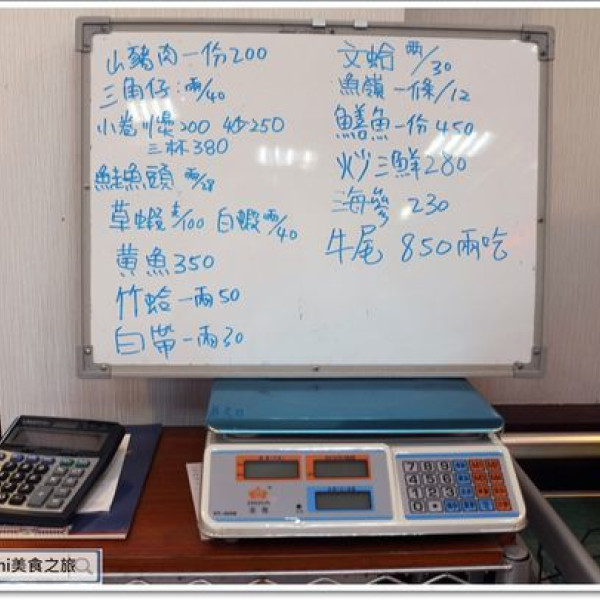 山豬肉一份200
三角仔:兩/40
小卷川燙200 炒250
三杯380
鮭魚頭 兩/28
草蝦 /100 白蝦兩/40
黃魚350
竹蛤一兩50
白帶一兩30
文蛤 兩/30
魚嶺一條/12
鱔魚一份450
炒三鮮280
海參 230
牛尾 850兩吃
7 8 9
4 5 6
1 2 3
0
美食之旅